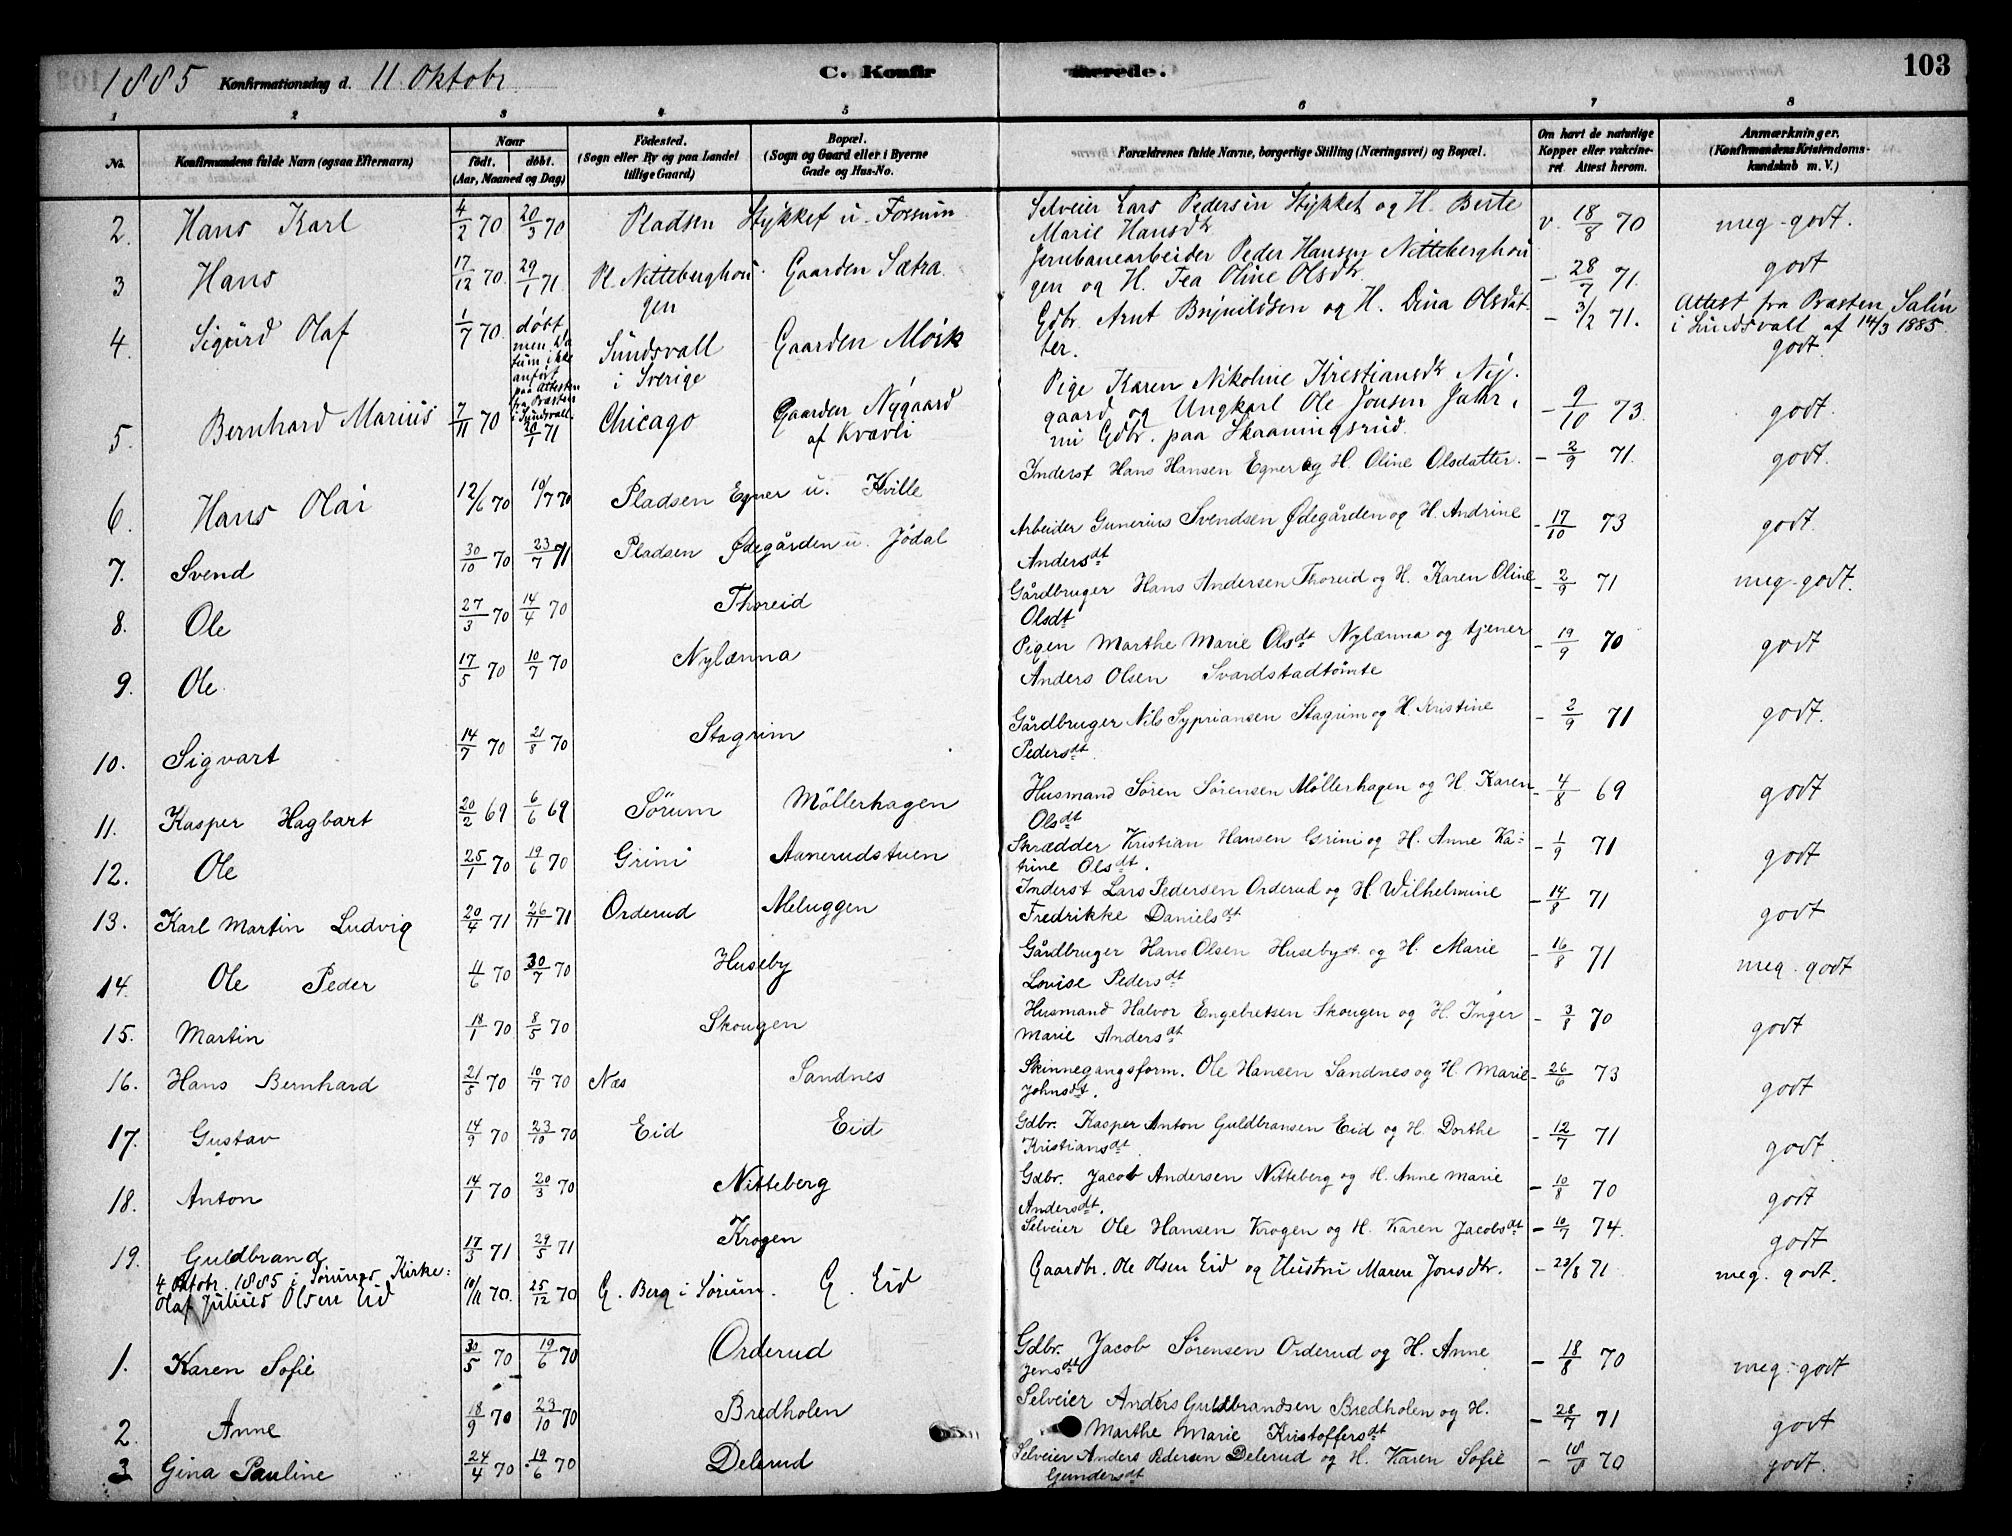 1885 Konfirmationsdag d. 11. Oktobr. C. Konfirmerede. 103
1 2 3 4 5 6 7 8
No. Konfirmandens fulde Navn (ogsaa Efternavn) Naar født. døbt. (Aar, Maaned og Dag) Fødested. (Sogn eller By og paa Landet tillige Gaard) Bopæl. (Sogn og Gaard eller i Byerne Gade og Hus-No. Forældrenes fulde Navne, borgerlige Stilling (Næringsvei) og Bopæl. Om havt de naturlige Kopper eller vakcineret Attest herom. Anmærkninger. (Konfirmandens Kristendomskundskab m. V.)
2. Hans Karl 4/2 70 20/3 70 Pladsen Stykket u. Forsum Selveier Lars Pedersen Stykket og H. Berte
Marie Hansdtr v. 18/8 70 meg-godt.
3 Hans 17/12 70. 29/1 71. Pl. Nitteberghougen Gaarden Sætra Jernbanearbeider Peder Hansen Nitteberghou
gen og H. Tea Oline Olsdtr. - 28/7 71. godt
4. Sigurd Olaf 1/7 70. døbt men Datum ikke anført paa Attesten fra Præsten i Sundsvall. Sundsvall i Sverige Gaarden Mørk Gdbr. Arnt Brynildsen og H. Dina Olsdat
ter. - 3/2 71. Attest fra Præsten Salin
i Sundsvall af 14/3 1885.
godt.
5. Bernhard Marius 7/11 70 20/1 71 Chicago Gaarden Nygaard af Kvævli Pige Karen Nikoline Kristiansdtr Ny-
gaard og Ungkarl Ole Jonsen Jahr,
nu Gdbr. paa Skaaningsrud. - 9/10 73. godt.
6. Hans Olai 12/6 70 10/7 70 Pladsen Egner u. Kville Inderst Hans Hansen Egner og H. Oline Olsdatter. - 2/9 71. godt.
7. Svend 30/10 70 23/7 71 Pladsen Ødegården u. Jødal Arbeider Gunerius Svendsen Ødegården og H. Andrine
Andersdt - 17/10 73 godt.
8. Ole 27/3 70 14/4 70 Thoreid Gårdbruger Hans Andersen Thoreid og H. Karen Oline
Olsdt - 2/9 71 meg-godt.
9. Ole. 17/5 70 10/7 70 Nylænna Pigen Marthe Marie Olsdt Nylænna og tjener
Anders Olsen Svardstadtömte - 19/9 70 godt
10. Sigvart 14/7 70 21/8 70 Stagrim Gårdbruger Nils Sypriansen Stagrim og H. Kristine
Pedersdt. - 2/9 71 godt.
11. Kasper Hagbart 20/2 69 6/6 69 Sørum Möllerhagen Husmand Søren Sørensen Möllerhagen og H. Karen
Olsdt - 4/8 69 godt
12. Ole 25/1 70 19/6 70 Grini Aanerudstuen Skrædder Kristian Hansen Grini og H. Anne Ka-
trine Olsdt. - 1/9 71 godt
13. Karl Martin Ludvig 20/4 71 26/11 71 Orderud Meluggen Inderst Lars Pedersen Orderud og H. Wilhelmine
Fredrikke Danielsdt - 14/8 71 godt
14. Ole Peder 11/6 70 30/7 70 Huseby Gårdbruger Hans Olsen Huseby og H. Marie
Lovise Pedersdt - 16/8 71 meg-godt
15. Martin 18/1 70 8/5 70 Skougen Husmand Halvor Engebretsen Skougen og H. Inger
Marie Andersdt - 3/8 70 godt
16. Hans Bernhard 21/5 70 10/7 70 Næs Sandnes Skinnegangsform. Ole Hansen Sandnes og H. Marie
Johnsdt. - 26/6 73 godt
17. Gustav 14/9 70 23/10 70 Eid Eid Gdbr. Kasper Anton Guldbransen Eid og H. Dorthe
Kristiansdt. - 12/7 71 godt.
18. Anton 14/1 70 20/3 70 Nitteberg Gdbr. Jacob Andersen Nitteberg og H. Anne Marie
Andersdt. - 10/8 70 godt
19. Guldbrand 17/3 71 29/5 71 Krogen Selveier Ole Hansen Krogen og H. Karen Jacobsdt - 10/7 74. godt
4 Oktobr. 1885 i Sørums Kirke:
Olaf Julius Olsen Eid 10/11 70. 25/12 70 G. Berg i Sørum. G. Eid Gaardbr. Ole Olsen Eid og Hustru Maren Jonsdtr. - 23/8 71. meg. godt.
1. Karen Sofie 30/5 70 19/6 70 Orderud Gdbr. Jacob Sørensen Orderud og H. Anne
Jensdt - 18/8 70 meg-godt
2. Anne 18/9 70 23/10 70 Bredholen Selveier Anders Guldbrandsen Bredholen og H.
Marthe Marie Kristoffersdt - 28/7 71 godt
3 Gina Pauline 24/4 70 19/6 70 Delerud Selveier Anders Pedersen Delerud og H. Karen Sofie
Gundersdt - 18/8 70 godt.